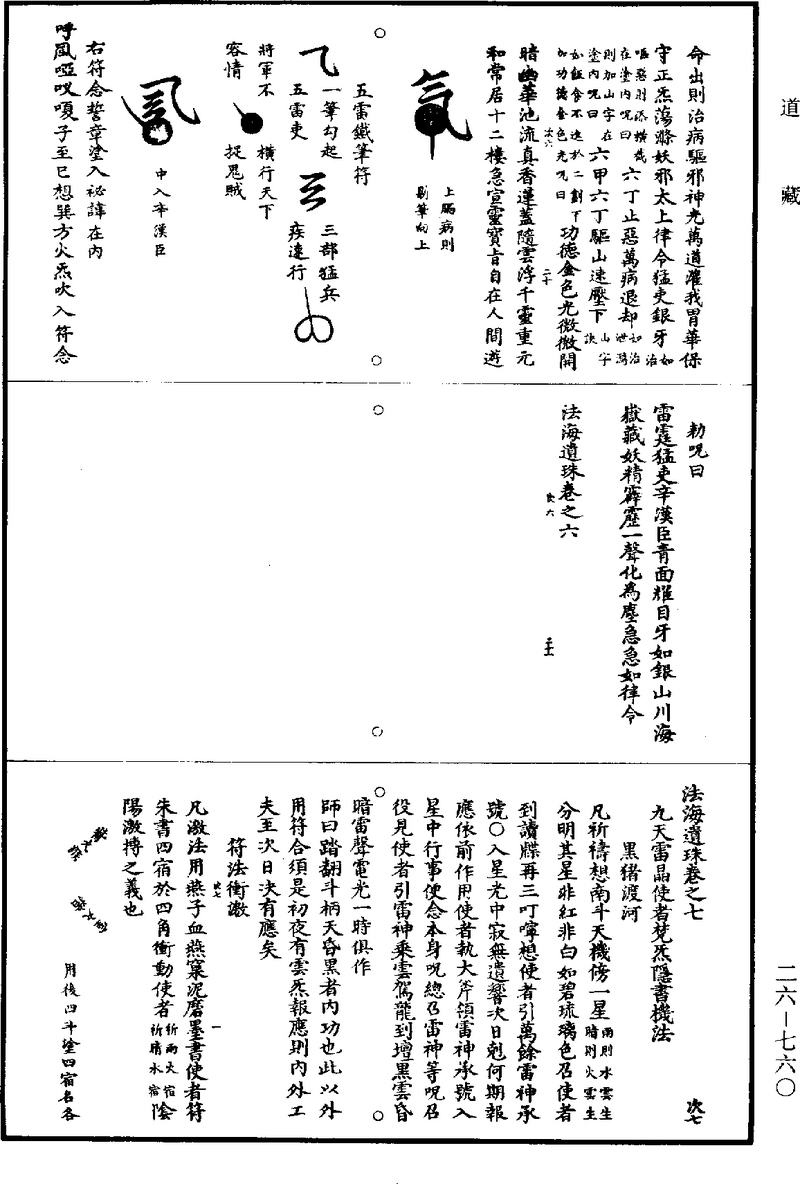 道藏
命出則治病驅邪神光萬道灌我胃華保
守正炁蕩滌妖邪太上律令猛吏銀牙如治
嘔惡則添橫截在塗內呪曰六丁止惡萬病退却如治泄瀉
則加山字在塗內呪曰六甲六丁驅山速壓下山字訣
如飯食不進於二劃下加功德金色光呪曰功德金色光微微開
暗幽華池流真香蓮蓋隨雲浮千靈重元
和常居十二樓急宣靈寶旨自在人間遊
次六
二十
氣
上膈病則
剔筆向上
五雷鐵筆符
一筆勾起
五雷吏
三部猛兵
疾速行
將軍不
容情
橫行天下
捉鬼賊
中入辛漢臣
右符念誓章塗入祕諱在內
呼風啞吺嗄子至巳想巽方火炁吹入符念
勑呪曰
雷霆猛吏辛漢臣青面耀目牙如銀山川海
嶽藏妖精霹靂一聲化為塵急急如律令
法海遺珠卷之六
次六
二十一
法海遺珠卷之七
次七
九天雷晶使者梵炁隱書機法
黑猪渡河
凡祈禱想南斗天機傍一星雨則水雲生暗則火雲生
分明其星非紅非白如碧琉璃色召使者
到讀牒再三叮嚀想使者引萬餘雷神承
號〇入星光中寂無遺響次日剋何期報
應依前作用使者執大斧領雷神承號入
星中行事便念本身呪總召雷神等呪召
役見使者引雷神乘雲駕龍到壇黑雲昏
暗雷聲電光一時俱作
師曰踏翻斗柄天昏黑者內功也此以外
用符合須是初夜有雲炁報應則內外工
夫至次日決有應矣
符法衝激
次七
一
凡激法用燕子血燕窠泥磨墨書使者符
朱書四宿於四角衝動使者祈雨火宿祈晴水宿陰
陽激搏之義也
用後四斗塗四宿名各
二六—七六〇